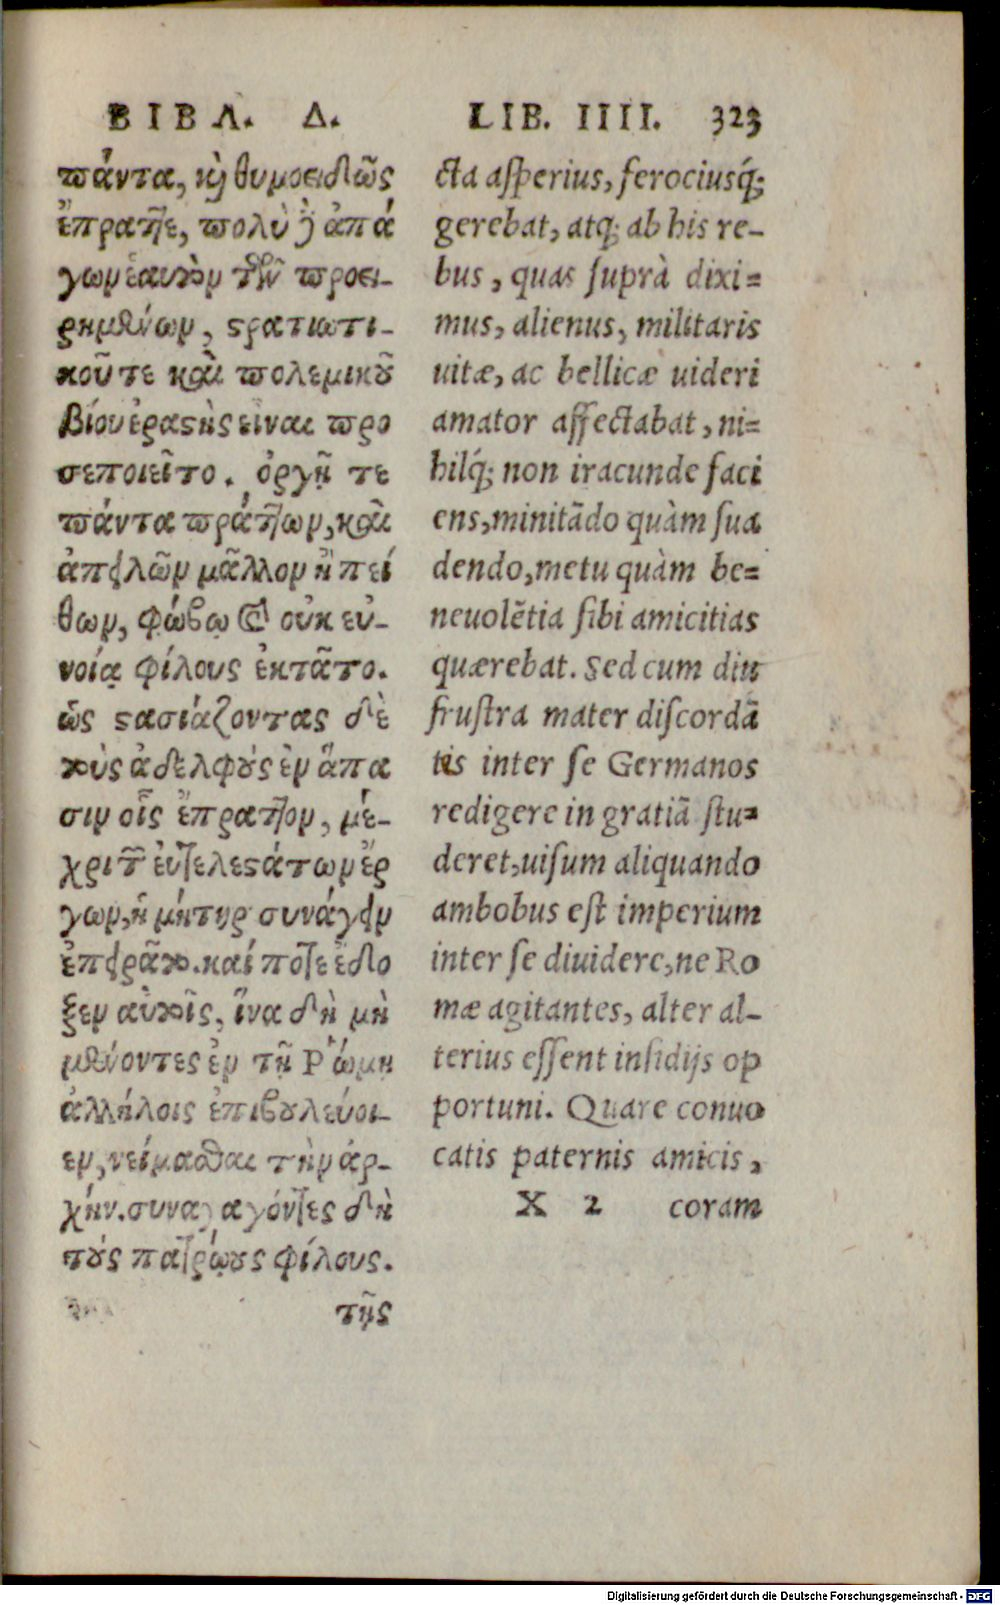 ΒΙΒΛ. Δ.
πάντα, κỳ θυμοειδῶς
ἔπραττε, πολὺ δ᾽ ἀπά
γωμ ἑαυτὸμ τῶν προει-
ρημένωμ, ϛρατιωτι-
κοῦ τε καὶ πολεμικοῦ
βίου ἐραϛὴς εἶναι προ
σεποιεῖτο. ὀργῇ τε
πάντα πράττωμ, καὶ
ἀπειλῶμ μᾶλλομ ἢ πεί
θωμ, φόβῳ τε οὐκ εὐ-
νοίᾳ φίλους ἐκτᾶτο.
ὡς ϛασιάζοντας δὲ
τοὺς ἀδελφοὺς ἐμ ἅπα
σιμ οἷς ἔπραττομ, μέ-
χρι τῶν εὐτελεϛάτωμ ἔρ
γωμ, ἡ μήτηρ συνάγειμ
ἐπειρᾶτο. καί ποτε ἔδο
ξεμ αὐτοῖς, ἵνα δὴ μὴ
μένοντες ἐμ τῇ Ρ῾ώμῃ
ἀλλήλοις ἐπιβουλεύοι-
εμ, νείμασθαι τὴμ ἀρ-
χήν. συναγαγόντες δὴ
τούς πατρῴους φίλους.
τῆς
LIB. IIII. 323
cta asperius, ferociusq́;
gerebat, atq; ab his re-
bus, quas suprà dixi=
mus, alienus, militaris
uitæ, ac bellicæ uideri
amator affectabat, ni=
hilq́; non iracunde faci
ens, minitãdo quàm sua
dendo, metu quàm be=
neuolẽtia sibi amicitias
quærebat. Sed cum diu
frustra mater discordã
tis inter se Germanos
redigere in gratiã stu=
deret, uisum aliquando
ambobus est imperium
inter se diuidere, ne Ro
mæ agitantes, alter al-
terius essent insidijs op
portuni. Quare conuo
catis paternis amicis,
X 2 coram
Digitalisierung gefördert durch die Deutsche Forschungsgemeinschaft - DFG